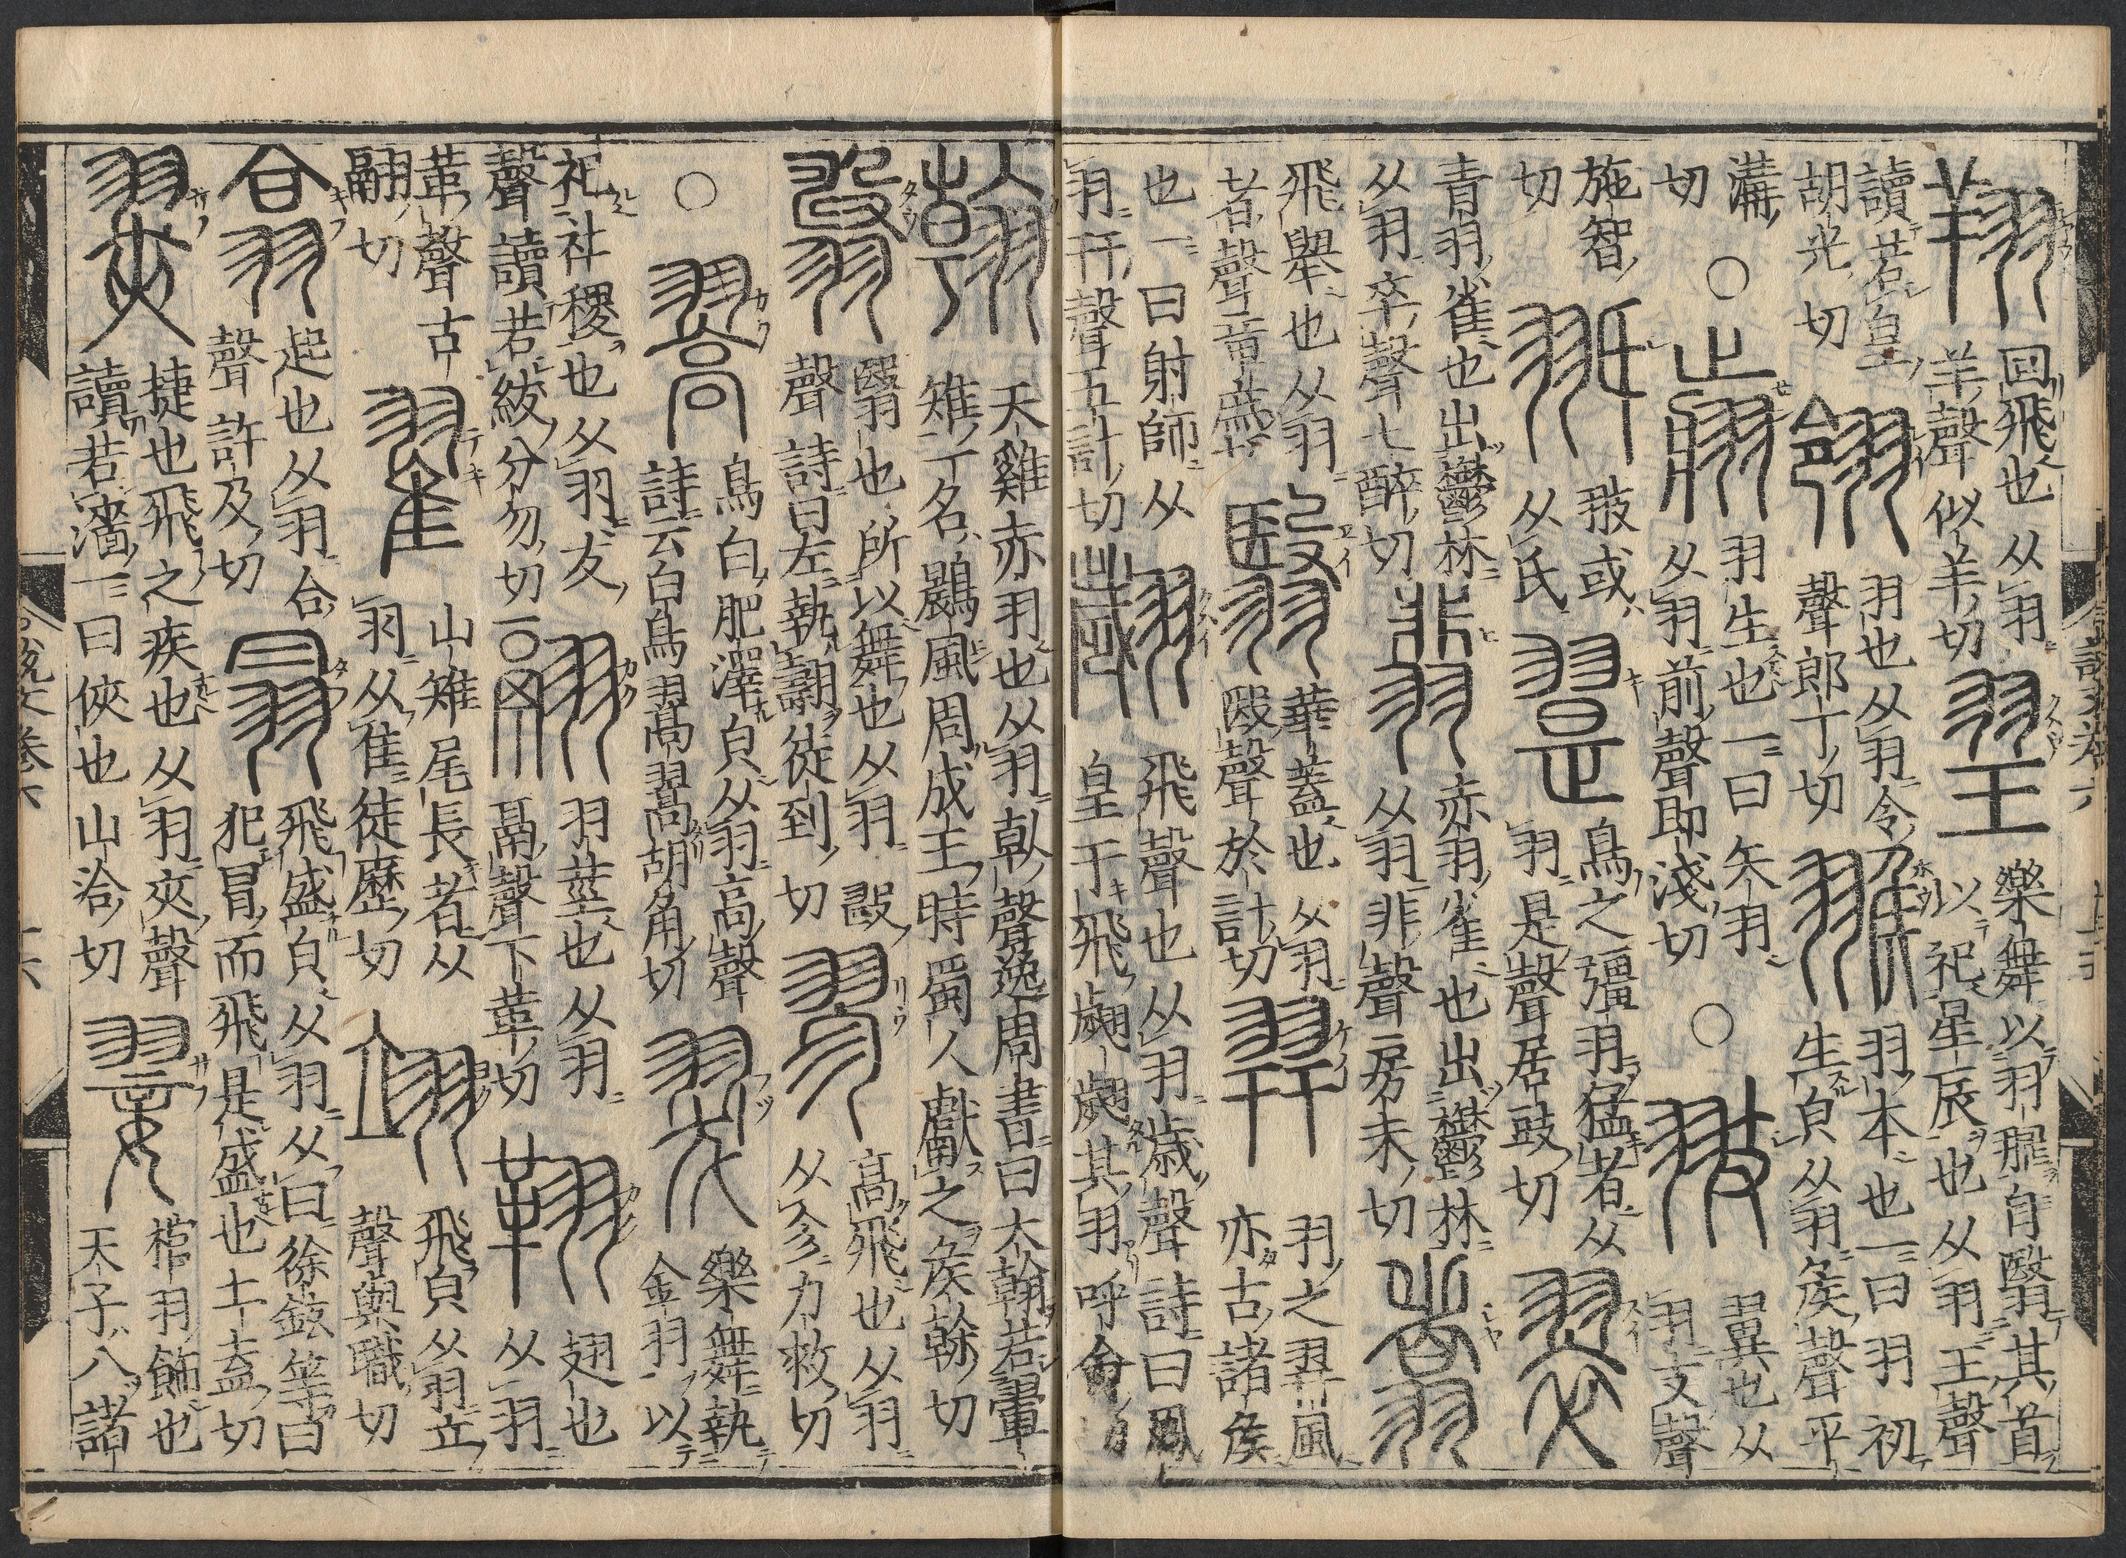 翔
回飛也从羽
羊聲似羊切
䍿
樂舞以羽𦐇自翳其首
以祀星辰也从羽王聲
讀若皇
胡光切
翎
羽也从羽令
聲郎丁切
翭
羽本也一曰羽初
生皃从羽矦聲平
溝
切
○
翦
羽生也一曰矢羽
从羽前聲即淺切
○
翄
翼也从
羽支聲
施智
切
𦐊
翄或
从氏
翨
鳥之彊羽猛者从
羽是聲居豉切
翠
青羽雀也出鬱林
从羽卒聲七醉切
翡
赤羽雀也出鬱林
从羽非聲房未切
翥
飛舉也从羽
者聲章庶切
翳
華蓋也从羽
殹聲於計切
羿
羽之羿風
亦古諸矦
也一曰射師从
羽幵聲五計切
翽
飛聲也从羽歲聲詩曰鳳
皇于飛翽翽其羽呼會切
翰
天雞赤羽也从羽倝聲逸周書曰大翰若翬
雉一名鷐風周成王時蜀人獻之矦幹切
翳也所以舞也从羽𣪘
聲詩曰左執翿徒到切
翏
高飛也从羽
从㐱力救切
○
翯
鳥白肥澤皃从羽高聲
詩云白鳥翯翯胡角切
翇
樂舞執
金羽以
祀社稷也从羽犮
聲讀若紱分勿切
○
翮
羽莖也从羽
鬲聲下革切
翅也
从羽
革聲古
翮切
翟
山雉尾長者从
羽从隹徒歷切
翊
飛皃从羽立
聲與職切
翕
起也从羽合
聲許及切
𦐇
飛盛皃从羽从冃徐鉉等曰
犯冒而飛是盛也土盍切
捷也飛之疾也从羽夾聲
讀若瀒一曰俠也山洽切
翣
棺羽飾也
天子八諸